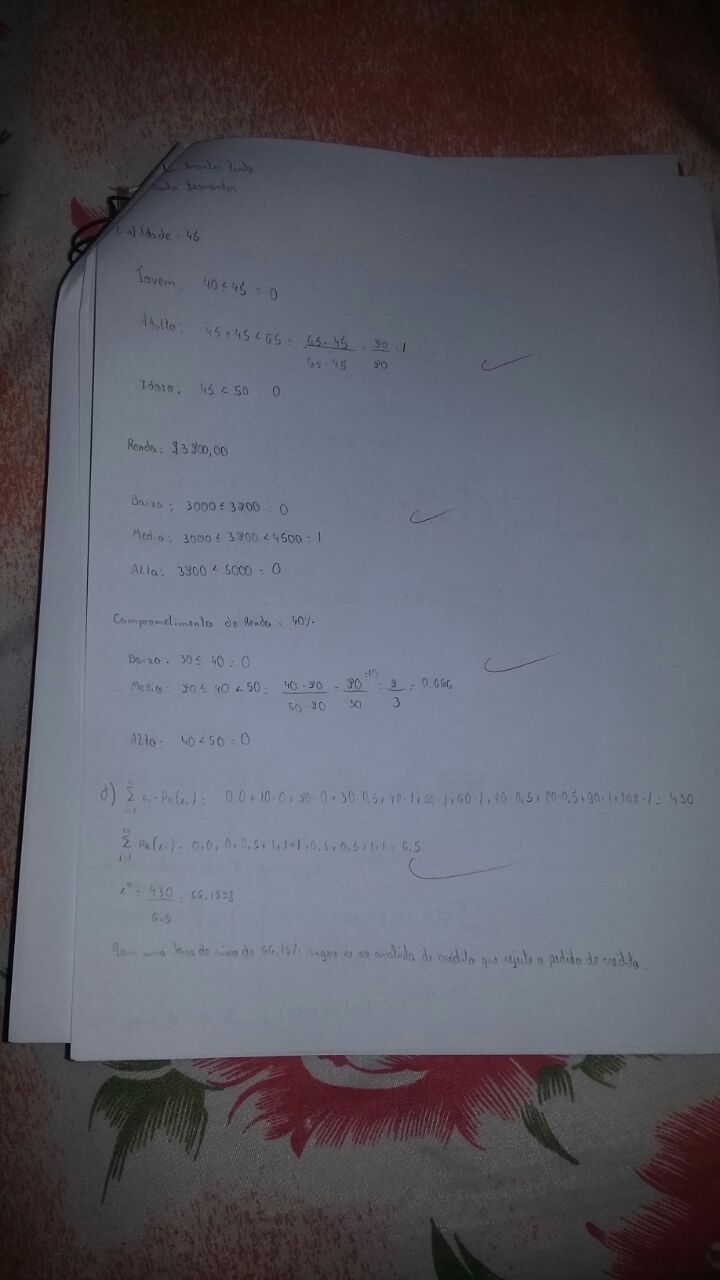 1-a) Idade: 45
Jovem: 40 ≤ 45 = 0
Adulto: 45 ≤ 45 < 65 = 65-45 / 65-45 = 20/20 = 1
Idoso: 45 < 50 = 0
Renda: $3200,00
Baixa: 3000 ≤ 3200 = 0
Média: 3000 ≤ 3200 < 4500 = 1
Alta: 3200 < 5000 = 0
Comprometimento de Renda = 40%
Baixo - 30 ≤ 40 = 0
Médio: 20 ≤ 40 < 50 = 40-20 / 50-20 = 20/30 :10 = 2/3 = 0.666
Alto - 40 < 50 = 0
d) n Σ i=1 xi · Pa(xi) = 0.0 + 10·0 + 20·0 + 30·0,5 + 40·1 + 50·1 + 60·1 + 70·0,5 + 80·0,5 + 90·1 + 100·1 = 430
n Σ i=1 Pa(xi) = 0+0+0+0,5+1+1+1+0,5+0,5+1+1 = 6.5
x* = 430 / 6.5 = 66.1538
uma taxa de risco de 66,15% sugere se ao analista de crédito que rejeite o pedido de crédito.